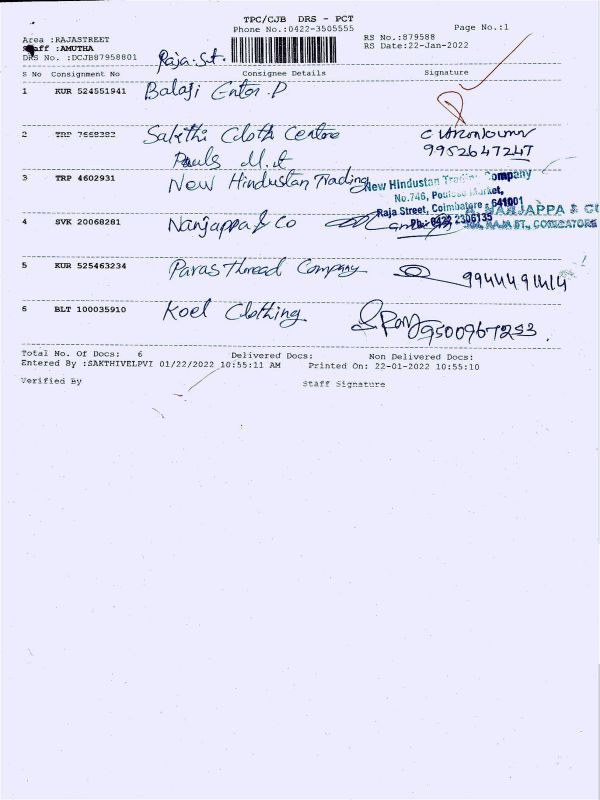 TPC/CJB DRS - PCT
Phone No.:0422-3505555
Page No.:1
Area :RAJASTREET
RS No.:879588
Staff :AMUTHA
RS Date:22-Jan-2022
DRS No. :DCJB87958801
Raja.St.
S No Consignment No Consignee Details Signature
1 KUR 524551941 Balaji Enter.P
2 TRP 7668382 Sakthi Cloth Centre
Pauls M.t
9952647247
3 TRP 4602931 New Hindustan Trading
New Hindustan Trading Company
No.746, Market,
Raja Street, Coimbatore - 641001
Ph: 0422 2306135
4 SVK 20068281 Nanjappa & Co
NANJAPPA & CO
RAJA ST., COIMBATORE
5 KUR 525463234 Paras Thread Company
6 BLT 100035910 Koel Clothing
9500967253
Total No. Of Docs: 6 Delivered Docs: Non Delivered Docs:
Entered By :SAKTHIVELPVI 01/22/2022 10:55:11 AM Printed On: 22-01-2022 10:55:10
Verified By Staff Signature